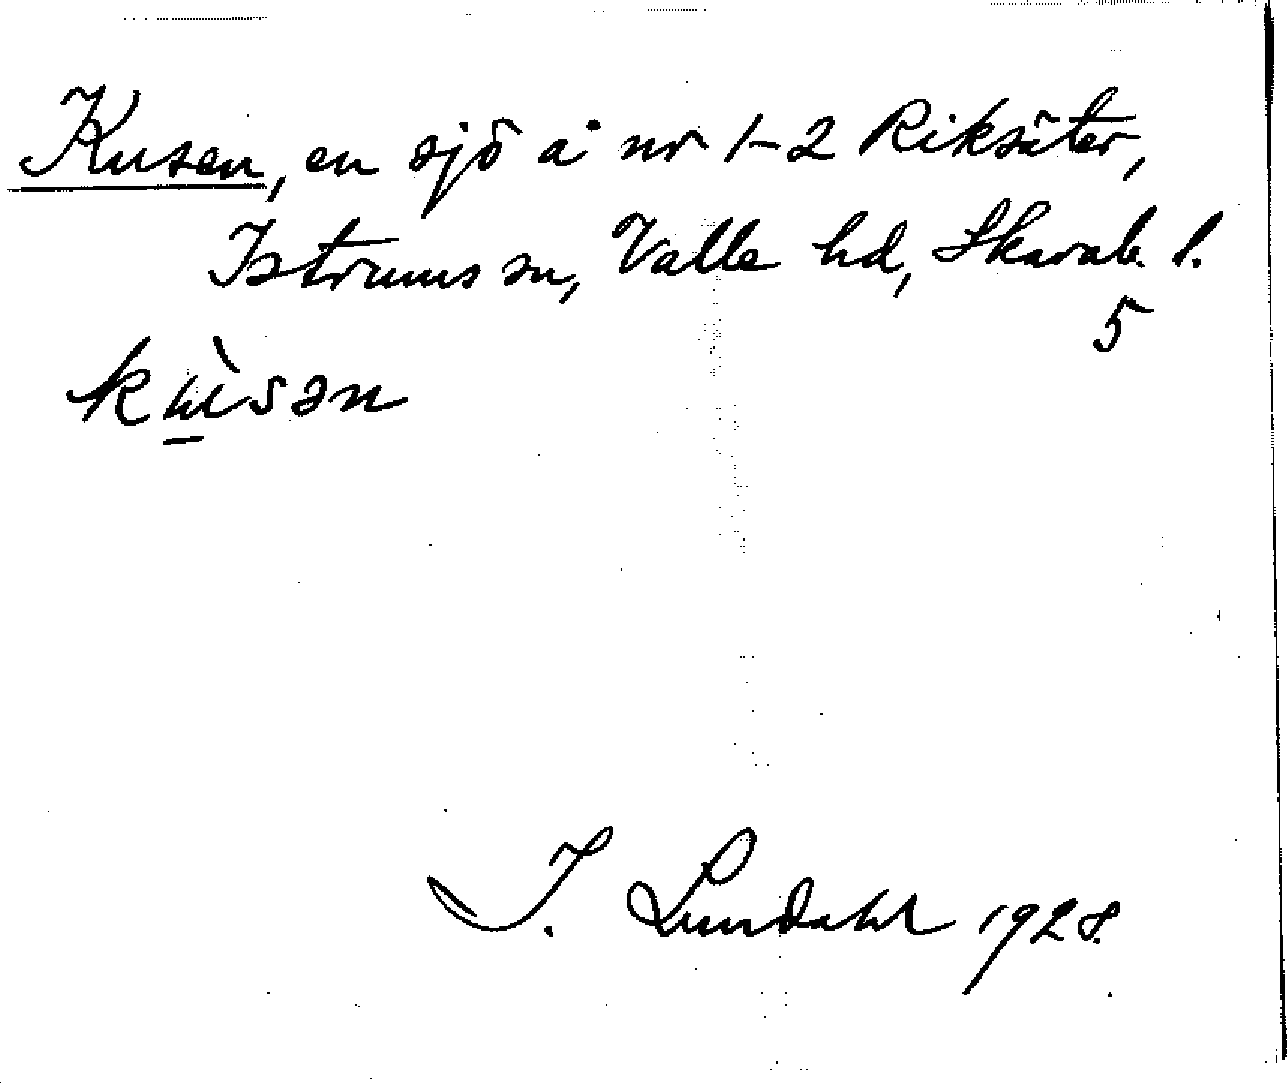 Kusen, en sjö å nr 1-2 Riksäter,
Istrums sn, Valle hd, Skarab. l.
5
kùsən
I. Lundahl 1928.